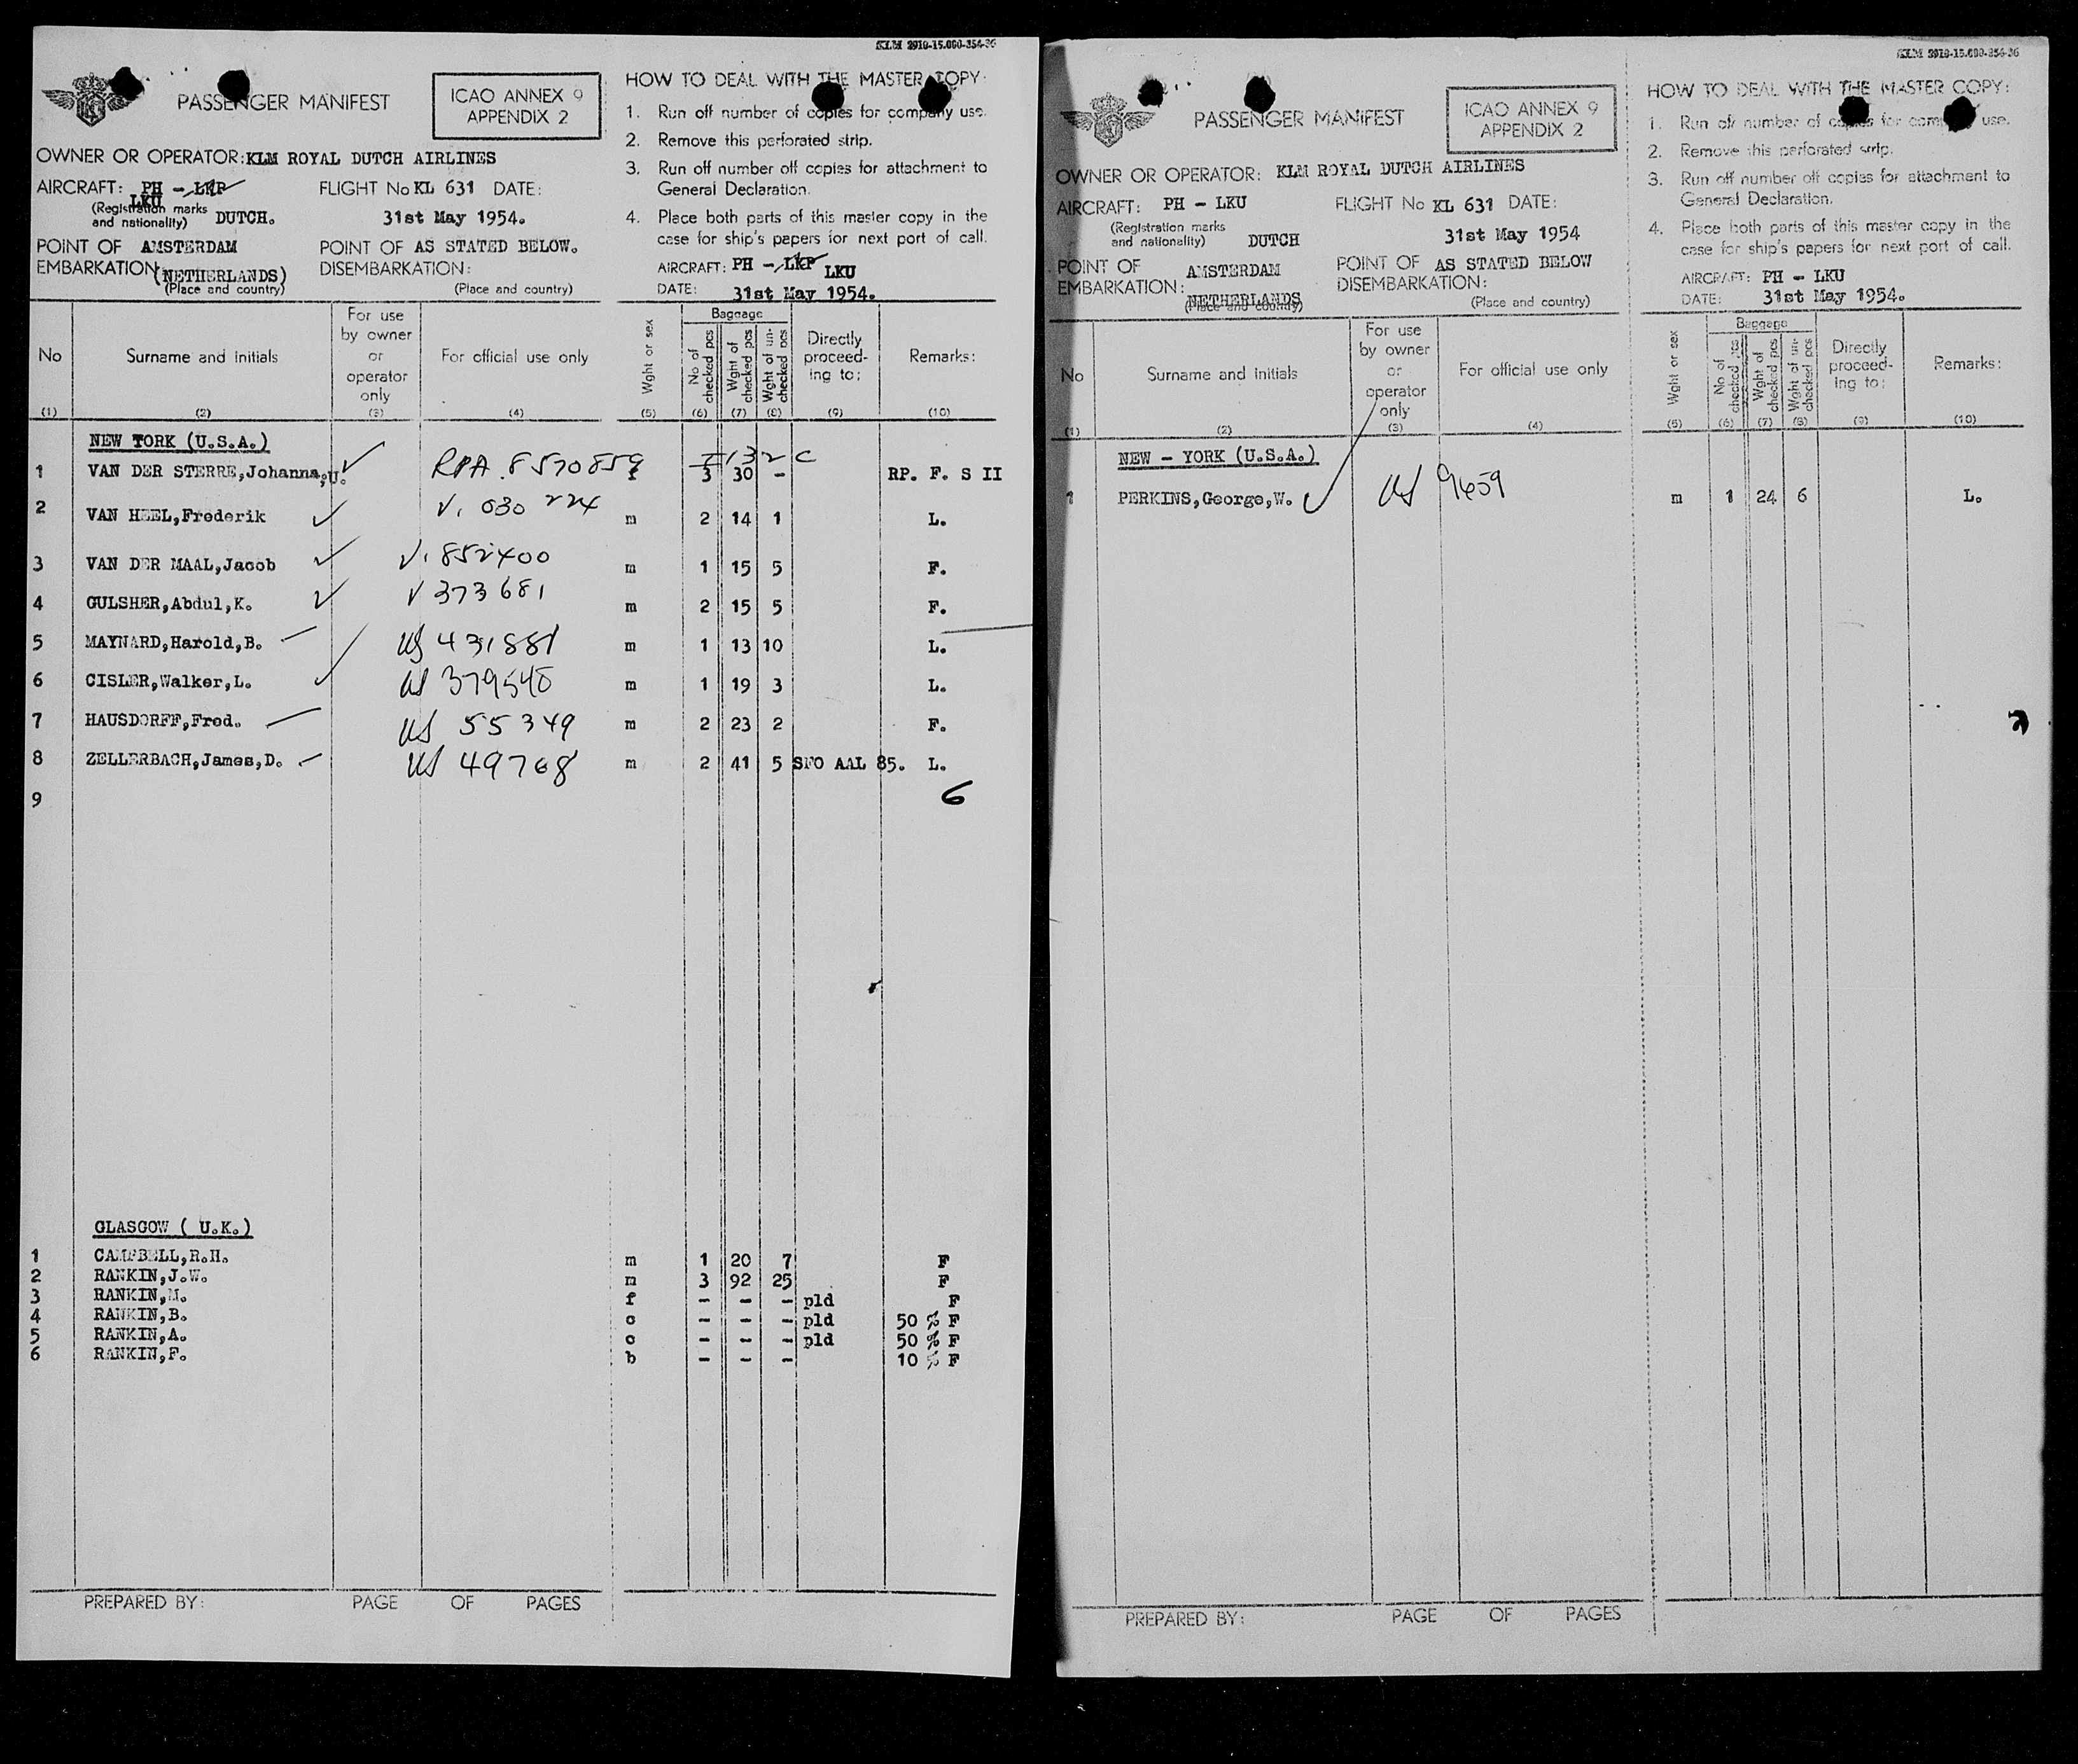 KLM 2910-15.000-354-36
PASSENGER MANIFEST
ICAO ANNEX 9
APPENDIX 2
OWNER OR OPERATOR: KLM ROYAL DUTCH AIRLINES
AIRCRAFT: PH - LKP
LKU
FLIGHT No KL 631 DATE:
(Registration marks
and nationality) DUTCH.
31st May 1954.
POINT OF AMSTERDAM
EMBARKATION: (NETHERLANDS)
(Place and country)
POINT OF AS STATED BELOW.
DISEMBARKATION:
(Place and country)
HOW TO DEAL WITH THE MASTER COPY:
1. Run off number of copies for company use.
2. Remove this perforated strip.
3. Run off number off copies for attachment to
General Declaration.
4. Place both parts of this master copy in the
case for ship's papers for next port of call.
AIRCRAFT: PH - LKP LKU
DATE: 31st May 1954.
No
(1)
Surname and initials
(2)
For use
by owner
or
operator
only
(3)
For official use only
(4)
Wght or sex
(5)
Baggage
No of
checked pcs
(6)
Wght of
checked pcs
(7)
Wght of un-
checked pcs
(8)
Directly
proceed-
ing to:
(9)
Remarks:
(10)
NEW YORK (U.S.A.)
I 132 C
1 VAN DER STERRE,Johanna,U. RPA. 8570859 f 3 30 - RP. F. S II
2 VAN HEEL,Frederik V. 030 224 m 2 14 1 L.
3 VAN DER MAAL,Jacob V. 852400 m 1 15 5 F.
4 GULSHER,Abdul,K. V 373681 m 2 15 5 F.
5 MAYNARD,Harold,B. US 431881 m 1 13 10 L.
6 CISLER,Walker,L. US 379540 m 1 19 3 L.
7 HAUSDORFF,Fred. US 55349 m 2 23 2 F.
8 ZELLERBACH,James,D. US 49768 m 2 41 5 SFO AAL 85. L.
9 6
GLASGOW ( U.K.)
1 CAMPBELL,R.H. m 1 20 7 F
2 RANKIN,J.W. m 3 92 25 F
3 RANKIN,M. f - - - pld F
4 RANKIN,B. c - - - pld 50 % F
5 RANKIN,A. c - - - pld 50 % F
6 RANKIN,F. b - - - 10 % F
PREPARED BY: PAGE OF PAGES
KLM 2910-15.000-354-36
PASSENGER MANIFEST
ICAO ANNEX 9
APPENDIX 2
OWNER OR OPERATOR: KLM ROYAL DUTCH AIRLINES
AIRCRAFT: PH - LKU
FLIGHT No KL 631 DATE:
(Registration marks
and nationality) DUTCH
31st May 1954
POINT OF AMSTERDAM
EMBARKATION: NETHERLANDS
(Place and country)
POINT OF AS STATED BELOW
DISEMBARKATION:
(Place and country)
HOW TO DEAL WITH THE MASTER COPY:
1. Run off number of copies for company use.
2. Remove this perforated strip.
3. Run off number off copies for attachment to
General Declaration.
4. Place both parts of this master copy in the
case for ship's papers for next port of call.
AIRCRAFT: PH - LKU
DATE: 31st May 1954.
No
(1)
Surname and initials
(2)
For use
by owner
or
operator
only
(3)
For official use only
(4)
Wght or sex
(5)
Baggage
No of
checked pcs
(6)
Wght of
checked pcs
(7)
Wght of un-
checked pcs
(8)
Directly
proceed-
ing to:
(9)
Remarks:
(10)
NEW - YORK (U.S.A.)
1 PERKINS,George,W. US 9659 m 1 24 6 L.
PREPARED BY: PAGE OF PAGES